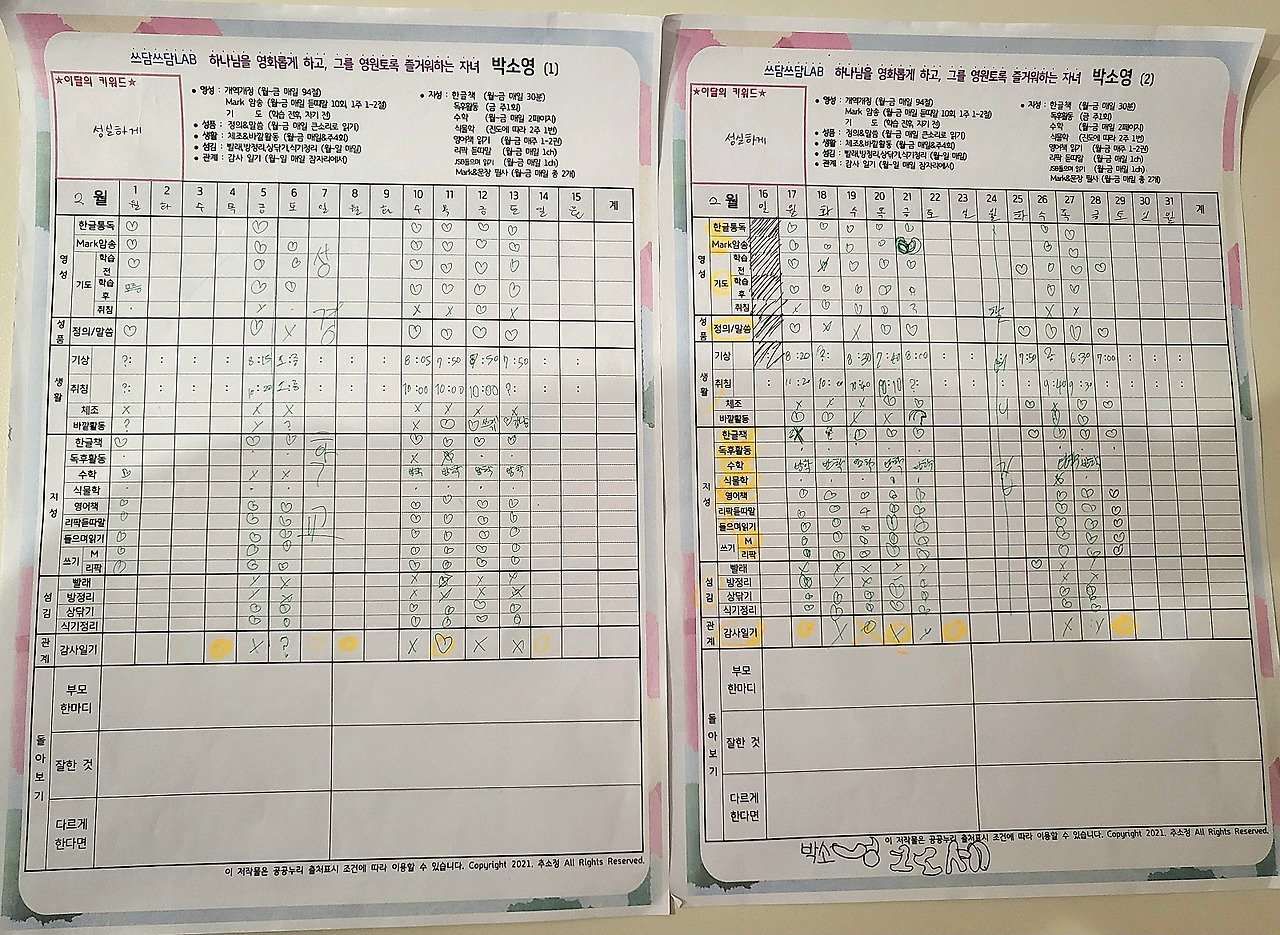 쓰담쓰담LAB 하나님을 영화롭게 하고, 그를 영원토록 즐거워하는 자녀 박소영 (1)
★이달의 키워드★
성실하게
• 영성 : 개역개정 (월-금 매일 94절)
Mark 암송 (월-금 매일 듣따말 10회 1주 1-2절)
기 도 (학습 전후, 자기 전)
• 성품 : 정의&말씀 (월-금 매일 큰소리로 읽기)
• 생활 : 체조&바깥활동 (월-금 매일&주4회)
• 섬김 : 빨래,방정리,상닦기,식기정리 (월-일 매일)
• 관계 : 감사 일기 (월-일 매일 잠자리에서)
• 지성 : 한글책 (월-금 매일 30분)
독후활동 (금 주1회)
수학 (월-금 매일 2페이지)
식물학 (진도에 따라 2주 1번)
영어책 읽기 (월-금 매주 1-2권)
리딱 듣따말 (월-금 매일 1ch)
JSB들으며 읽기 (월-금 매일 1ch)
Mark&문장 필사 (월-금 매일 총 2개)
2 월 1 2 3 4 5 6 7 8 9 10 11 12 13 14 15 계
월 화 수 목 금 토 일 월 화 수 목 금 토 일
영성 한글통독
Mark암송
기도 학습 전
학습 후
취침
성품 정의/말씀
생활 기상 ?: : : : 8:15 : : : 8:05 7:50 8:50 7:50 : :
취침 ?: : : : : : : 10:00 10:00 10:00 ?: : :
체조 X X X X X X X
바깥활동 ? X ? X
지성 한글책
독후활동
수학 X X 방학 방학 방학 방학
식물학
영어책
리딱듣따말
들으며읽기
쓰기 M
리딱
섬김 빨래
방정리
상닦기
식기정리
관계 감사일기 X ? X X X
돌아보기 부모 한마디
잘한 것
다르게 한다면
이 저작물은 공공누리 출처표시 조건에 따라 이용할 수 있습니다. Copyright 2021. 주소정 All Rights Reserved.
쓰담쓰담LAB 하나님을 영화롭게 하고, 그를 영원토록 즐거워하는 자녀 박소영 (2)
★이달의 키워드★
성실하게
• 영성 : 개역개정 (월-금 매일 94절)
Mark 암송 (월-금 매일 듣따말 10회 1주 1-2절)
기 도 (학습 전후, 자기 전)
• 성품 : 정의&말씀 (월-금 매일 큰소리로 읽기)
• 생활 : 체조&바깥활동 (월-금 매일&주4회)
• 섬김 : 빨래,방정리,상닦기,식기정리 (월-일 매일)
• 관계 : 감사 일기 (월-일 매일 잠자리에서)
• 지성 : 한글책 (월-금 매일 30분)
독후활동 (금 주1회)
수학 (월-금 매일 2페이지)
식물학 (진도에 따라 2주 1번)
영어책 읽기 (월-금 매주 1-2권)
리딱 듣따말 (월-금 매일 1ch)
JSB들으며 읽기 (월-금 매일 1ch)
Mark&문장 필사 (월-금 매일 총 2개)
2 월 16 17 18 19 20 21 22 23 24 25 26 27 28 29 30 31 계
일 월 화 수 목 금 토 일 월 화 수 목 금 토 일 월
영성 한글통독
Mark암송
기도 학습 전
학습 후
취침
성품 정의/말씀
생활 기상 8:20 ?: 8:30 7:40 8:00 : : 7:50 ? 6:30 7:00 : : :
취침 : 11:20 ?: : : : 9:40 9:30 : : :
체조
바깥활동
지성 한글책
독후활동
수학 방학 방학 방학 방학 방학 방학 방학
식물학
영어책
리딱듣따말
들으며읽기
쓰기 M
리딱
섬김 빨래
방정리
상닦기
식기정리
관계 감사일기
돌아보기 부모 한마디
잘한 것
다르게 한다면
이 저작물은 공공누리 출처표시 조건에 따라 이용할 수 있습니다. Copyright 2021. 주소정 All Rights Reserved.
박소영